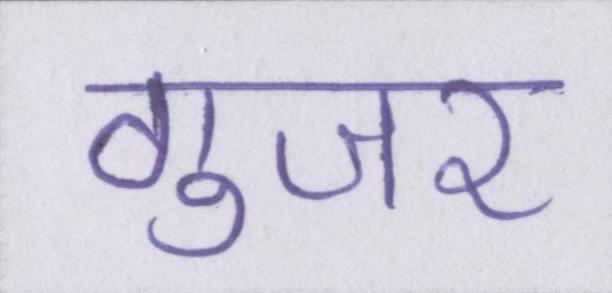 गुजर